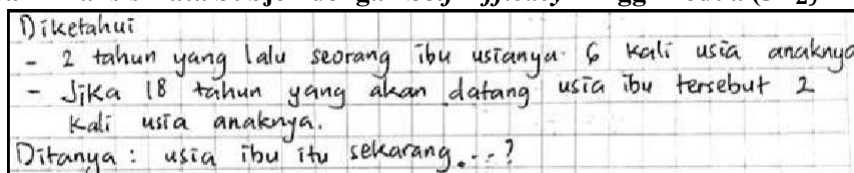 Diketahui
- 2 tahun yang lalu seorang ibu usianya 6 kali usia anaknya
- Jika 18 tahun yang akan datang usia ibu tersebut 2
kali usia anaknya.
Ditanya : usia ibu itu sekarang...?